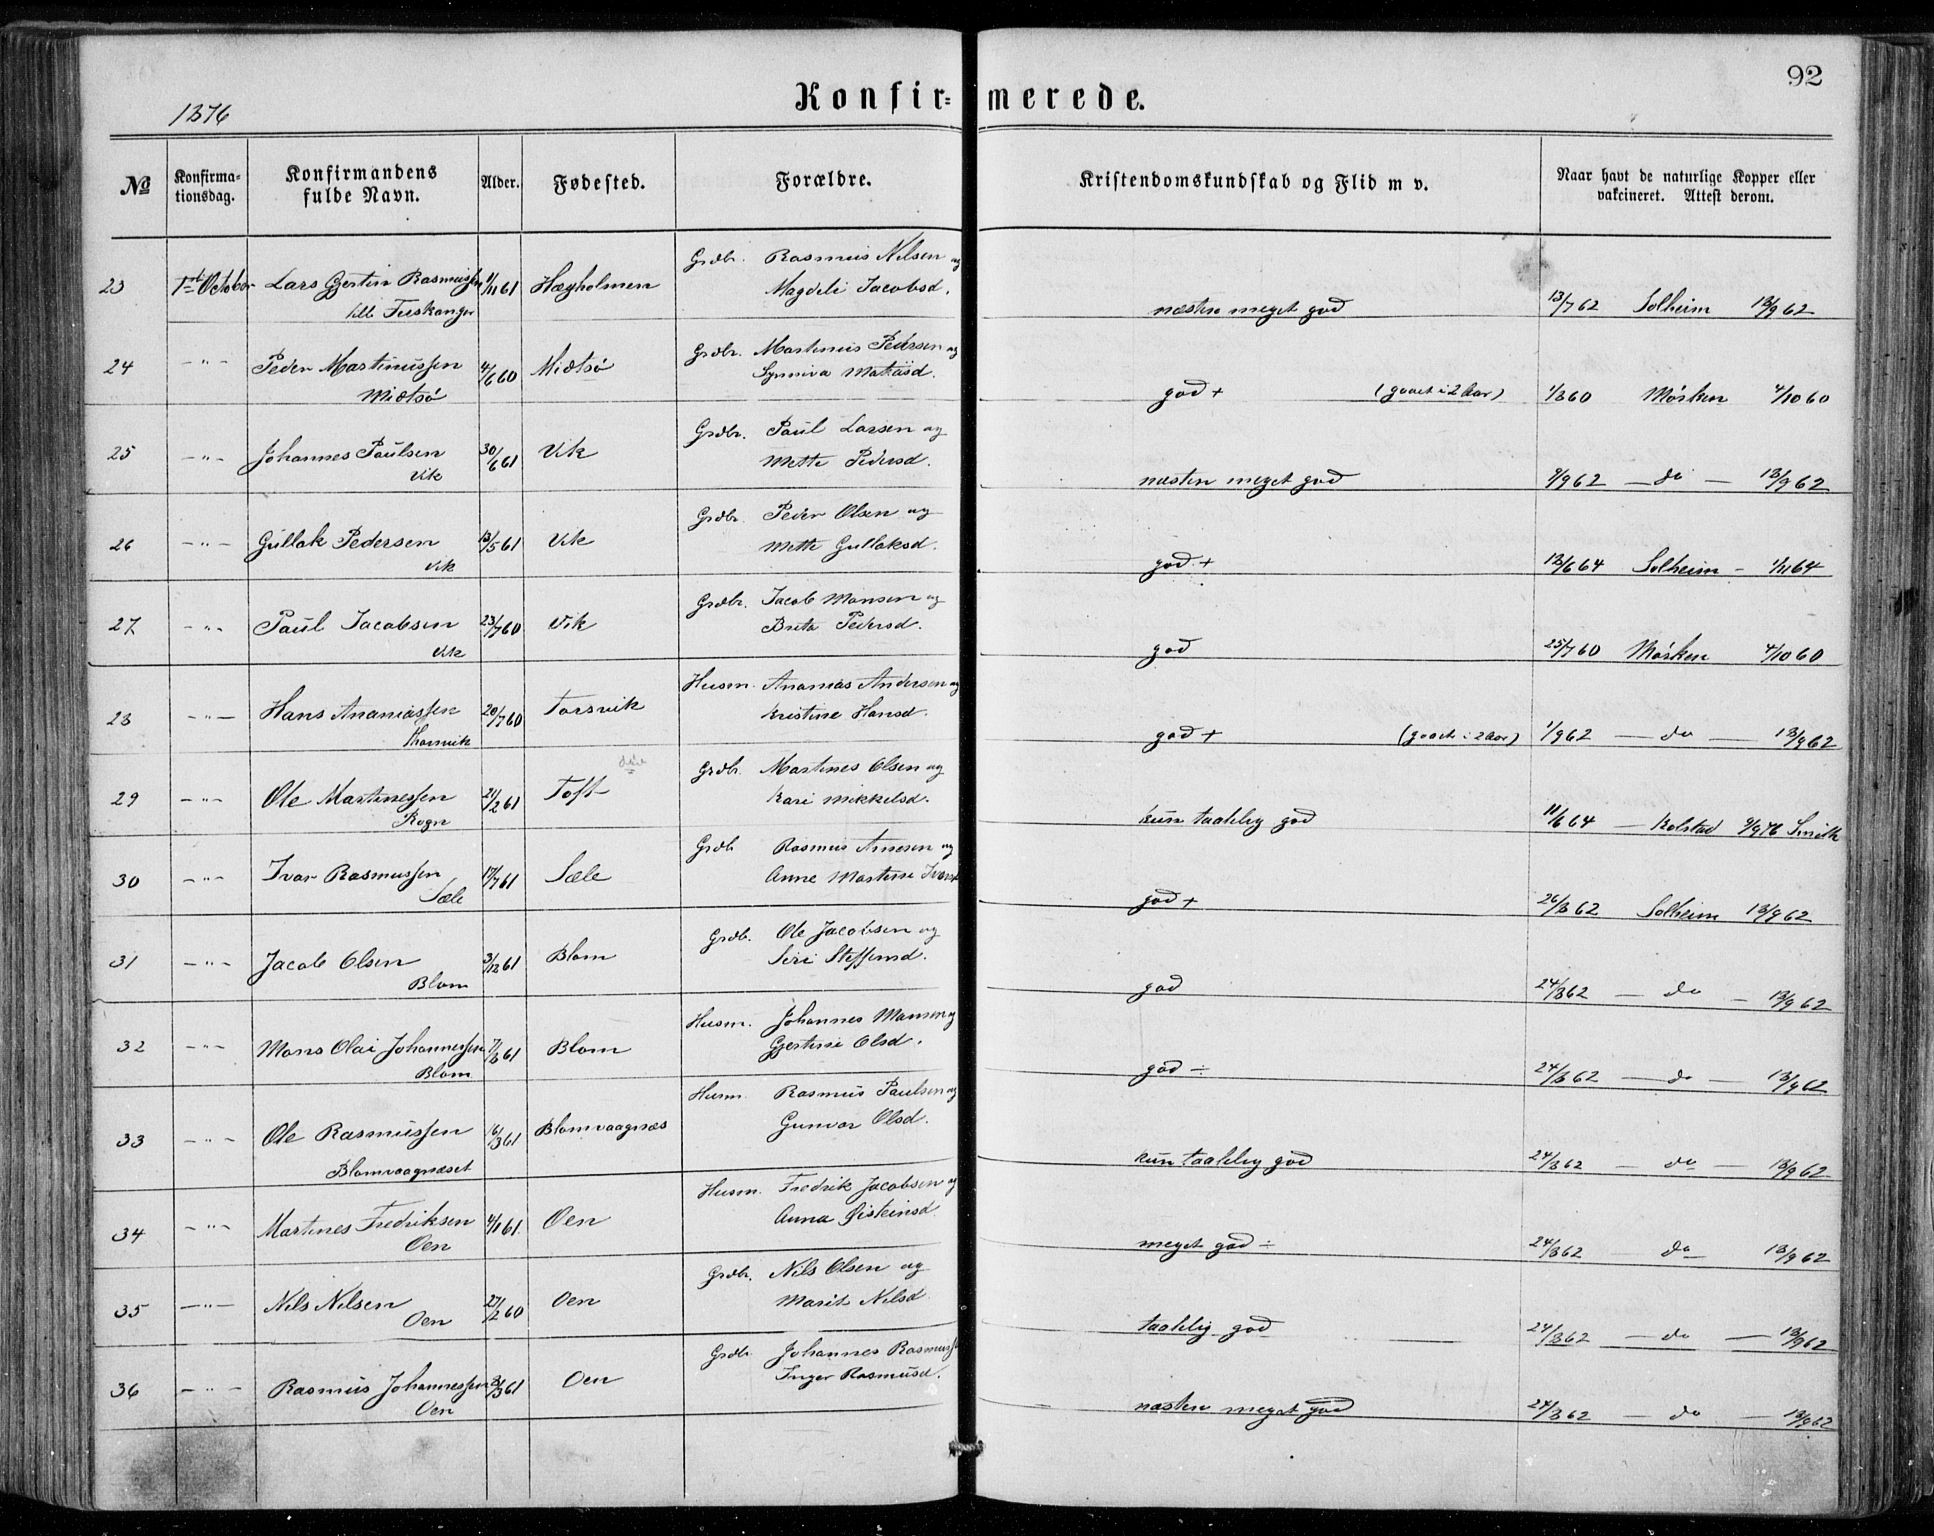 92
1876
Konfir=merede.
No Konfirma-tionsdag. Konfirmandens fulde Navn. Alder. Fødested. Forældre. Kristendomskundskab og Flid m v. Naar havt de naturlige Kopper eller vakcineret. Attest derom.
Grdbr. Rasmus Nilsen og
23 1ste October Lars Gjertin Rasmussen 1/11 61 Hægholmen Magdeli Jacobsd.
lille Feeskanger næsten meget god 13/7 62 Solheim 13/9 62
Grdbr. Martinus Pedersen og
24 -"- Peder Martinussen 4/6 60 Midtsø Synniva Matiasd.
Midtsø god + (gaaet i 2 Aar) 1/8 60 Mørken 4/10 60
Grdbr. Paul Larsen og
25 -"- Johannes Paulsen 30/6 61 Vik Mette Pedersd.
Vik næsten meget god 9/9 62 - do - 13/9 62
Grdbr. Peder Olsen og
26 -"- Gullak Pedersen 13/5 61 Vik Mette Gullaksd.
Vik god + 13/6 64 Solheim - 1/11 64
Grdbr. Jacob Monsen og
27 -"- Paul Jacobsen 23/7 60 Vik Brita Pedersd.
Vik god 25/7 60 Mørken 4/10 60
Husm. Ananias Andersen og
28 -"- Hans Ananiassen 20/7 60 Torsvik Kristine Hansd.
Thorsvik god + (gaaet i 2 Aar) 1/9 62 - do - 13/9 62
Grdbr. Martines Olsen og
29 -"- Ole Martinessen 21/2 61 Toft Kari Mikkelsd.
Rogn kun taalelig god 11/6 64 - Kolstad 9/9 76 Smith
Grdb Rasmus Arnesen og
30 -"- Ivar Rasmussen 17/7 61 Sæle Anne Martine Ivarsd
Sæle god + 26/8 62 Solheim 13/9 62
Grdb. Ole Jacobsen og
31 -"- Jacob Olsen 3/12 61 Blom Siri Steffensd.
Blom god 24/8 62 - do - 13/9 62
Husm. Johannes Monsen og
32 -"- Mons Olai Johannessen 7/3 61 Blom Gjertine Olsd.
Blom god ÷ 24/8 62 - do - 13/9 62
Husm. Rasmus Paulsen og
33 -"- Ole Rasmussen 16/3 61 Blomvaagnæs Gunvor Olsd.
Blomvaagnæset kun taalelig god 24/8 62 - do - 13/9 62
Husm. Fredrik Jacobsen og
34 -"- Martines Fredriksen 4/1 61. Oen Anna Østeinsd
Oen meget god ÷ 24/8 62 do 13/9 62
Grdbr. Nils Olsen og
35 -"- Nils Nilsen 27/2 60 Oen Marit Nilsd.
Oen taalelig god 24/8 62 - do - 13/9 62
Grdbr Johannes Rasmuss
36 -"- Rasmus Johannessen 31/3 61 Oen Inger Rasmusd.
Oen næsten meget god 24/8 62 - do - 13/9 62